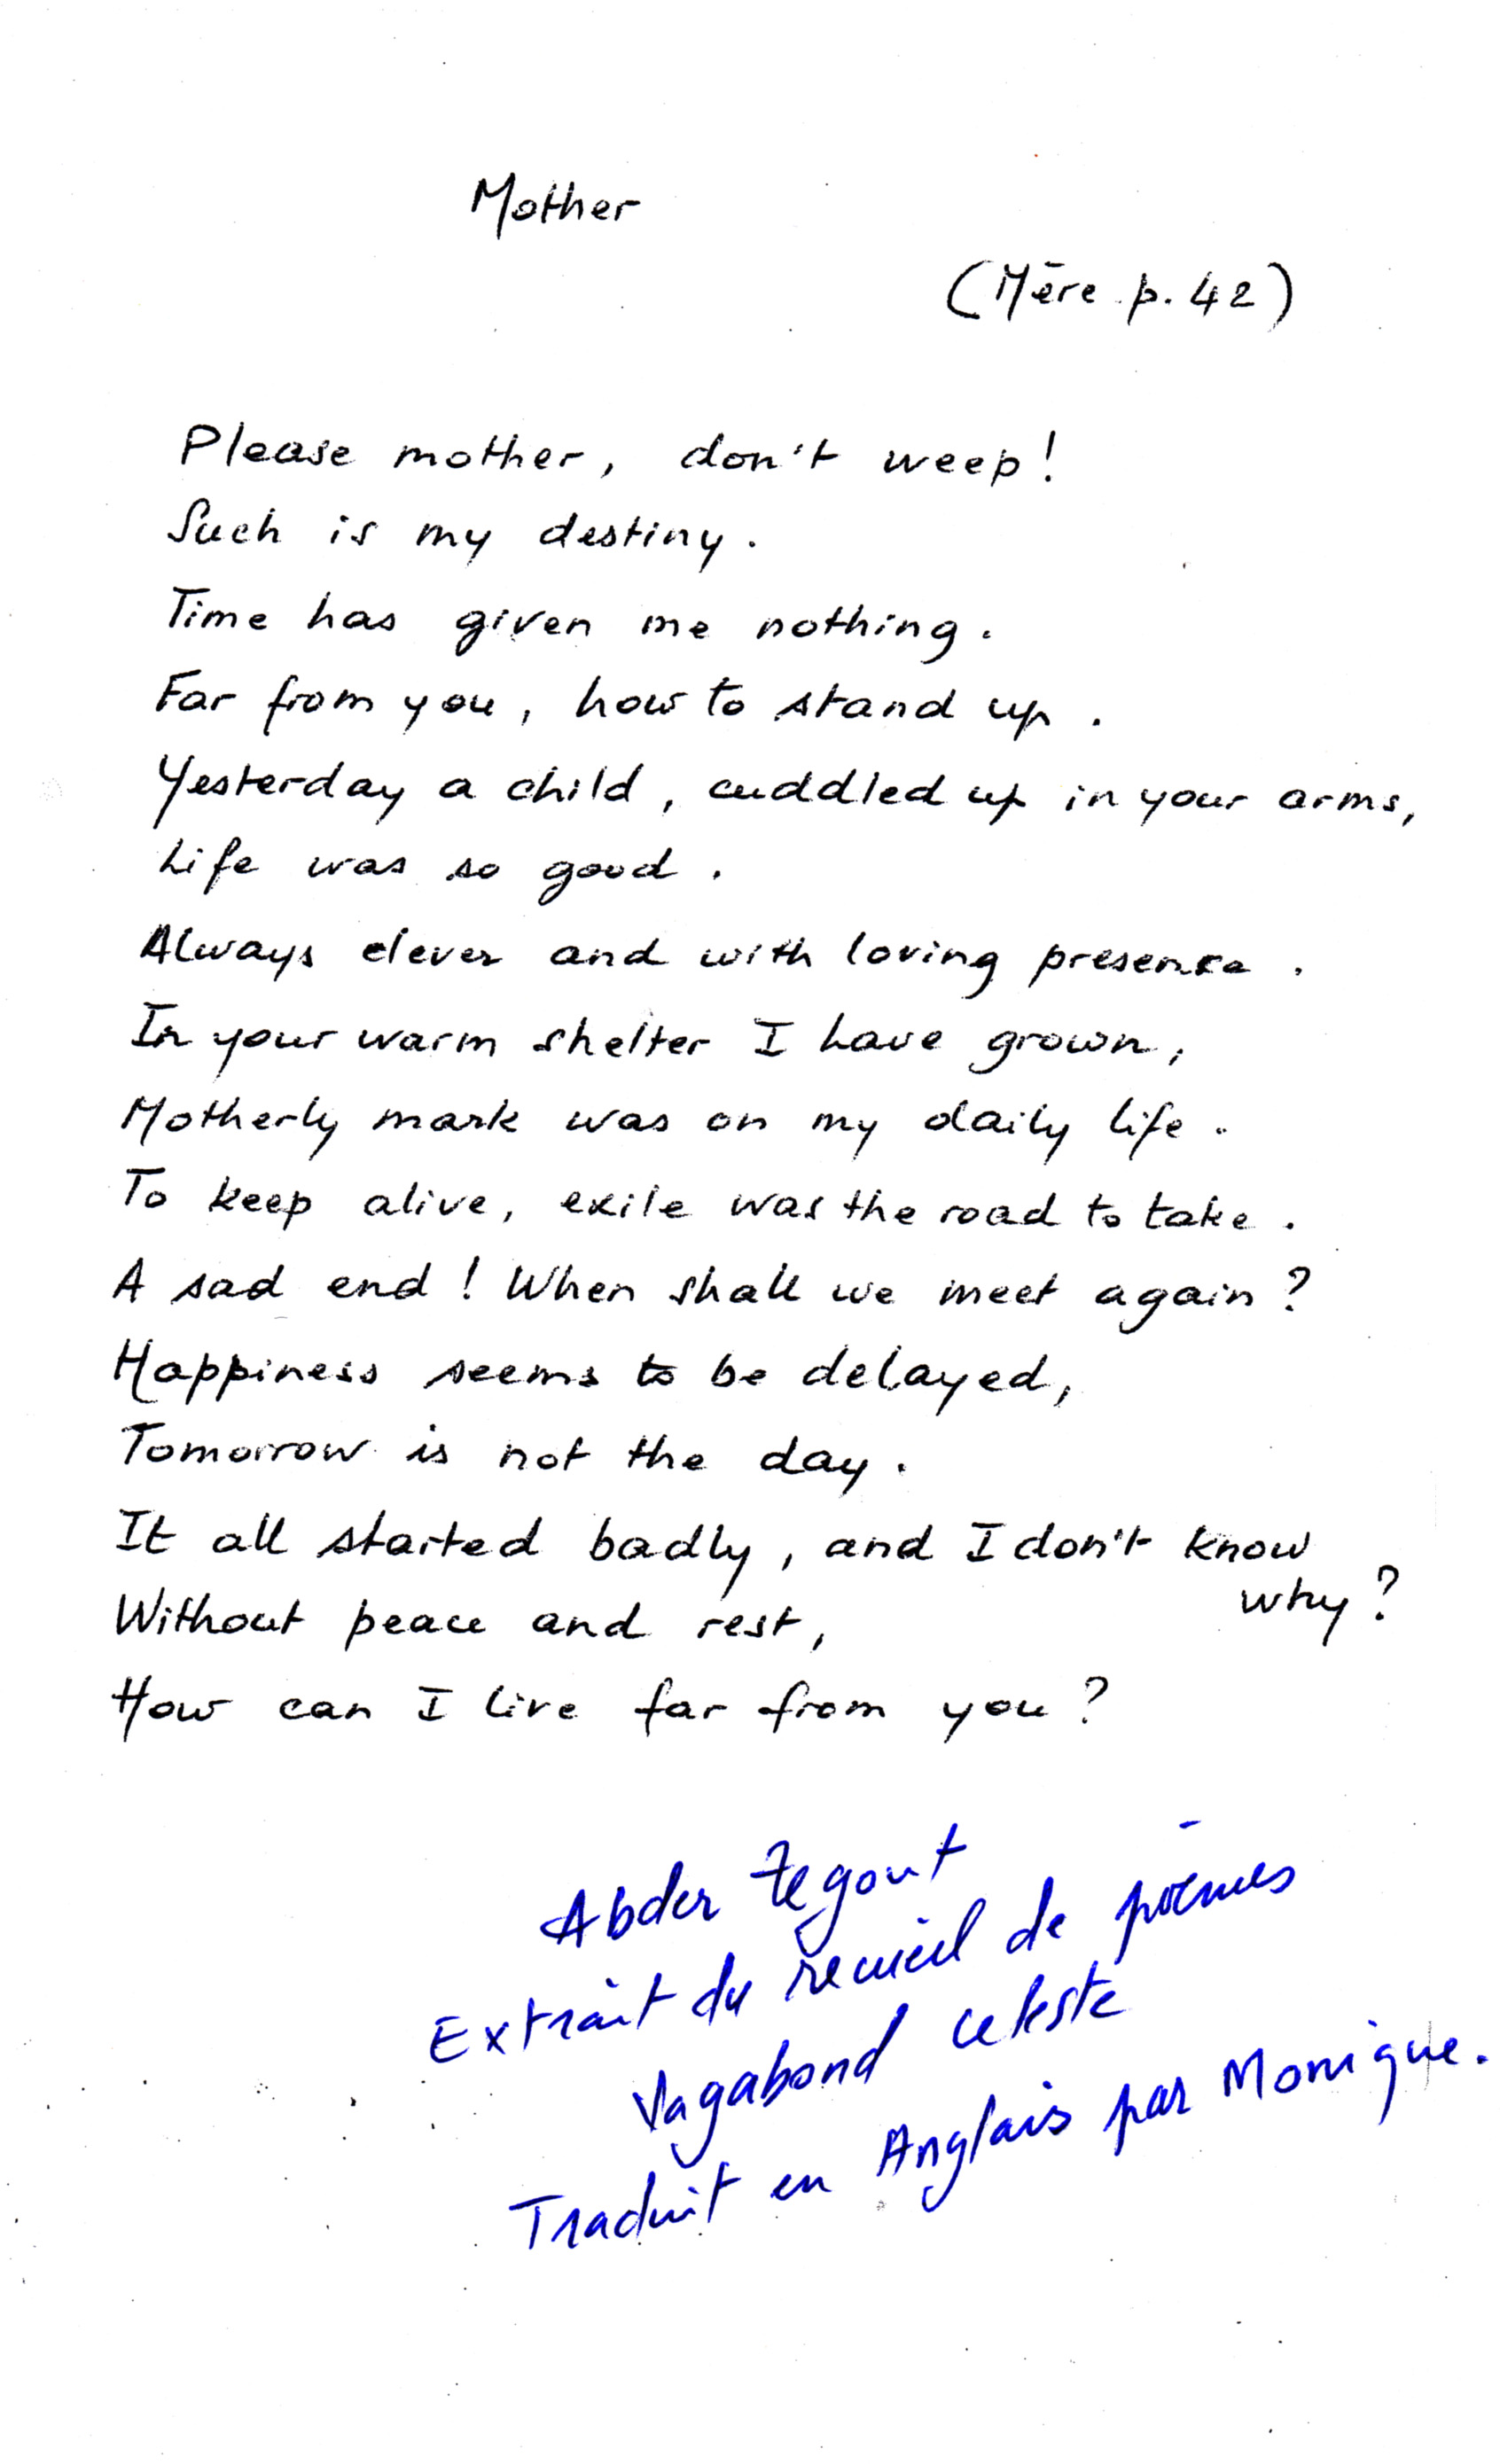 Mother
(Mère p. 42)
Please mother, don't weep!
Such is my destiny.
Time has given me nothing.
Far from you, how to stand up.
Yesterday a child, cuddled up in your arms,
Life was so good.
Always clever and with loving presence.
In your warm shelter I have grown,
Motherly mark was on my daily life.
To keep alive, exile was the road to take.
A sad end! When shall we meet again?
Happiness seems to be delayed,
Tomorrow is not the day.
It all started badly, and I don't know
why?
Without peace and rest,
How can I live far from you?
Abder Zegout
Extrait du recueil de poèmes
Vagabond celeste
Traduit en Anglais par Monique.